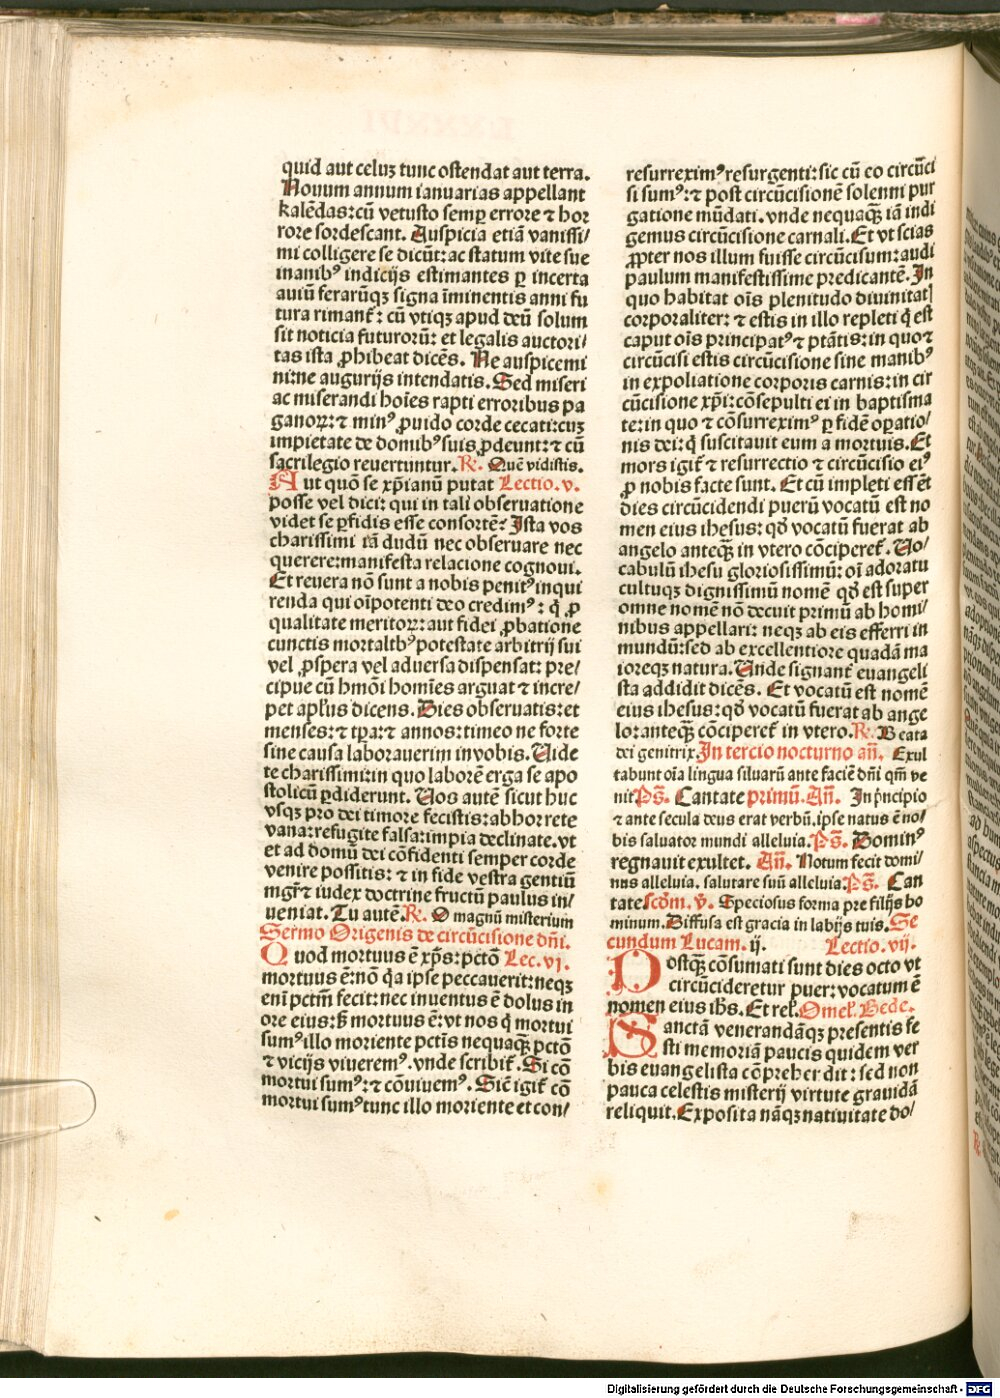 quid aut celuʒ tunc ostendat aut terra.
Nouum annum ianuarias appellant
kalēdas: cū vetusto semꝑ errore ⁊ hor
rore sordescant. Auspicia etiā vanissi/
mi colligere se dicūt: ac statum vite sue
inanibꝰ indicijs estimantes ꝑ incerta
auiū ferarūqʒ signa īminentis anni fu
tura rimant᷑: cū vtiqʒ apud deū solum
sit noticia futurorū: et legalis auctori/
tas ista ꝓhibeat dicēs. Ne auspicemi
ni: ne augurijs intendatis. Sed miseri
ac miserandi hoīes rapti erroribus pa
ganoꝝ: ⁊ minꝰ ꝓuido corde cecati: cuʒ
impietate de domibꝰ suis ꝓdeunt: ⁊ cū
sacrilegio reuertuntur. R. Quē vidistis.
Aut quō se xp̄ianū putat Lectio. v.
posse vel dici: qui in tali obseruatione
videt se ꝑfidis esse consortē? Ista vos
charissimi iā dudū nec obseruare nec
querere: manifesta relacione cognoui.
Et reuera nō sunt a nobis penitꝰ inqui
renda qui oīpotenti deo credimꝰ: q̄ ꝓ
qualitate meritoꝝ: aut fidei ꝓbatione
cunctis mortalibꝰ potestate arbitrij sui
vel ꝓspera vel aduersa dispensat: pre/
cipue cū hmōi homīes arguat ⁊ incre/
pet apl̄us dicens. Dies obseruatis: et
menses: ⁊ tp̄a: ⁊ annos: timeo ne forte
sine causa laborauerim in vobis. Uide
te charissimi: in quo laborē erga se apo
stolicū ꝑdiderunt. Uos autē sicut huc
vsqʒ pro dei timore fecistis: abhorrete
vana: refugite falsa: impia declinate. vt
et ad domū dei cōfidenti semper corde
venire possitis: ⁊ in fide vestra gentiū
mgr̄ ⁊ iudex doctrine fructū paulus in/
ueniat. Tu autē. R. O magnū misterium
Sermo Origenis de circūcisione dn̄i.
Quod mortuus ē xp̄s: pctō Lec. vj.
mortuus ē: nō q̄a ipse peccauerit: neqʒ
enī pctm̄ fecit: nec inuentus ē dolus in
ore eius: sʒ mortuus ē: vt nos q̄ mortui
sumꝰ illo moriente pctīs nequaqʒ pctō
⁊ vicijs viueremꝰ. vnde scribit᷑. Si cō
mortui sumꝰ: ⁊ cōuiuemꝰ. Sic̄ igit᷑ cō
mortui sumꝰ tunc illo moriente et con/
resurreximꝰ resurgenti: sic cū eo circūci
si sumꝰ: ⁊ post circūcisionē solenni pur
gatione mūdati. vnde nequaqʒ iā indi
gemus circūcisione carnali. Et vt scias
ꝓpter nos illum fuisse circūcisum: audi
paulum manifestissime predicantē. In
quo habitat oīs plenitudo diuinitatꝭ
corporaliter: ⁊ estis in illo repleti q̄ est
caput oīs principatꝰ ⁊ ptātis: in quo ⁊
circūcisi estis circūcisione sine manibꝰ
in expoliatione corporis carnis: in cir
cūcisione xp̄i: cōsepulti ei in baptisma
te: in quo ⁊ cōsurreximꝰ ꝑ fidē oꝑatio/
nis dei: q̄ suscitauit eum a mortuis. Et
mors igit᷑ ⁊ resurrectio ⁊ circūcisio eiꝰ
ꝓ nobis facte sunt. Et cū impleti eēnt
dies circūcidendi puerū vocatū est no
men eius ihesus: qd̄ vocatū fuerat ab
angelo anteqʒ in vtero cōciperet᷑. Uo/
cabulū ihesu gloriosissimū: oī adoratu
cultuqʒ dignissimū nomē qd̄ est super
omne nomē nō decuit primū ab homi/
nibus appellari: neqʒ ab eis efferri in
mundū: sed ab excellentiore quadā ma
ioreqʒ natura. Unde signant᷑ euangeli
sta addidit dicēs. Et vocatū est nomē
eius ihesus: qd̄ vocatū fuerat ab ange
lo: anteqʒ cōciperet᷑ in vtero. R. Beata
dei genitrix. In tercio nocturno an̄. Exul
tabunt oīa lingua siluarū ante faciē dn̄i qm̄ ve
nit Ps. Cantate primū. An̄. In pͥncipio
⁊ ante secula deus erat verbū, ipse natus ē no/
bis saluator mundi alleluia. Ps. Dominꝰ
regnauit exultet. An̄. Notum fecit domi/
nus alleluia. salutare suū alleluia. Ps. Can
tate scd̄m. v̄. Speciosus forma pre filijs ho
minum. Diffusa est gracia in labijs tuis. Se
cundum Lucam. ij. Lectio. vij.
Postqʒ cōsumati sunt dies octo vt
circūcideretur puer: vocatum ē
nomen eius ihs. Et rel̓. Omel̓. Bede.
Sanctā venerandāqʒ presentis fe
sti memoriā paucis quidem ver
bis euangelista cōpreherdit: sed non
pauca celestis misterij virtute grauidā
reliquit. Exposita nāqʒ natiuitate do/
Digitalisierung gefördert durch die Deutsche Forschungsgemeinschaft - DFG